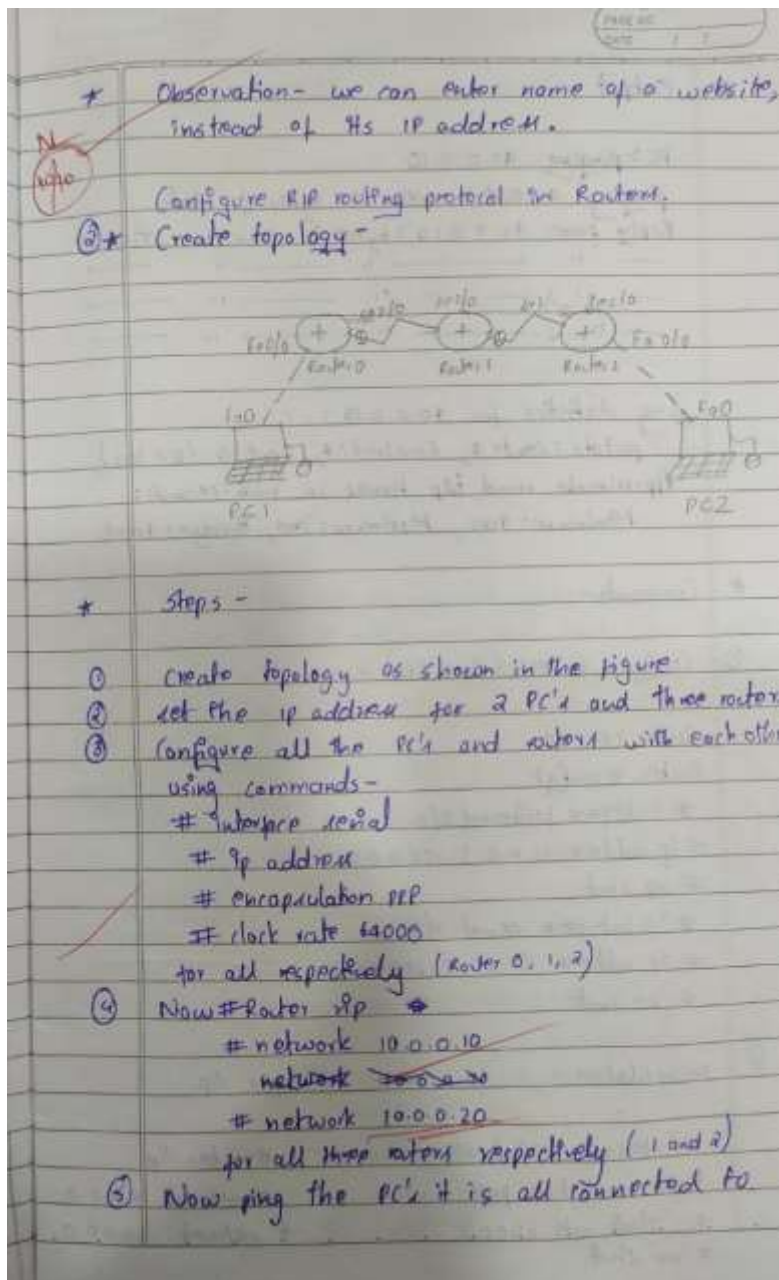 PAGE NO.
DATE / /
* Observation - we can enter name of a website,
instead of its IP address.
N
10/10
Configure RIP routing protocol in Routers.
② * Create topology -
Fa0/0
Router 0
Router 1
Router 2
Fa 0/0
Fa0
Fa0
PC1
PC2
* Steps -
① Create topology as shown in the figure
② set the ip address for 2 PC's and three router
③ Configure all the PC's and routers with each other
using commands -
# interface serial
# ip address
# encapsulation PPP
# clock rate 64000
for all respectively (Router 0, 1, 2)
④ Now # Router rip
# network 10.0.0.10
network
# network 10.0.0.20
for all three routers respectively (1 and 2)
⑤ Now ping the PC's it is all connected to